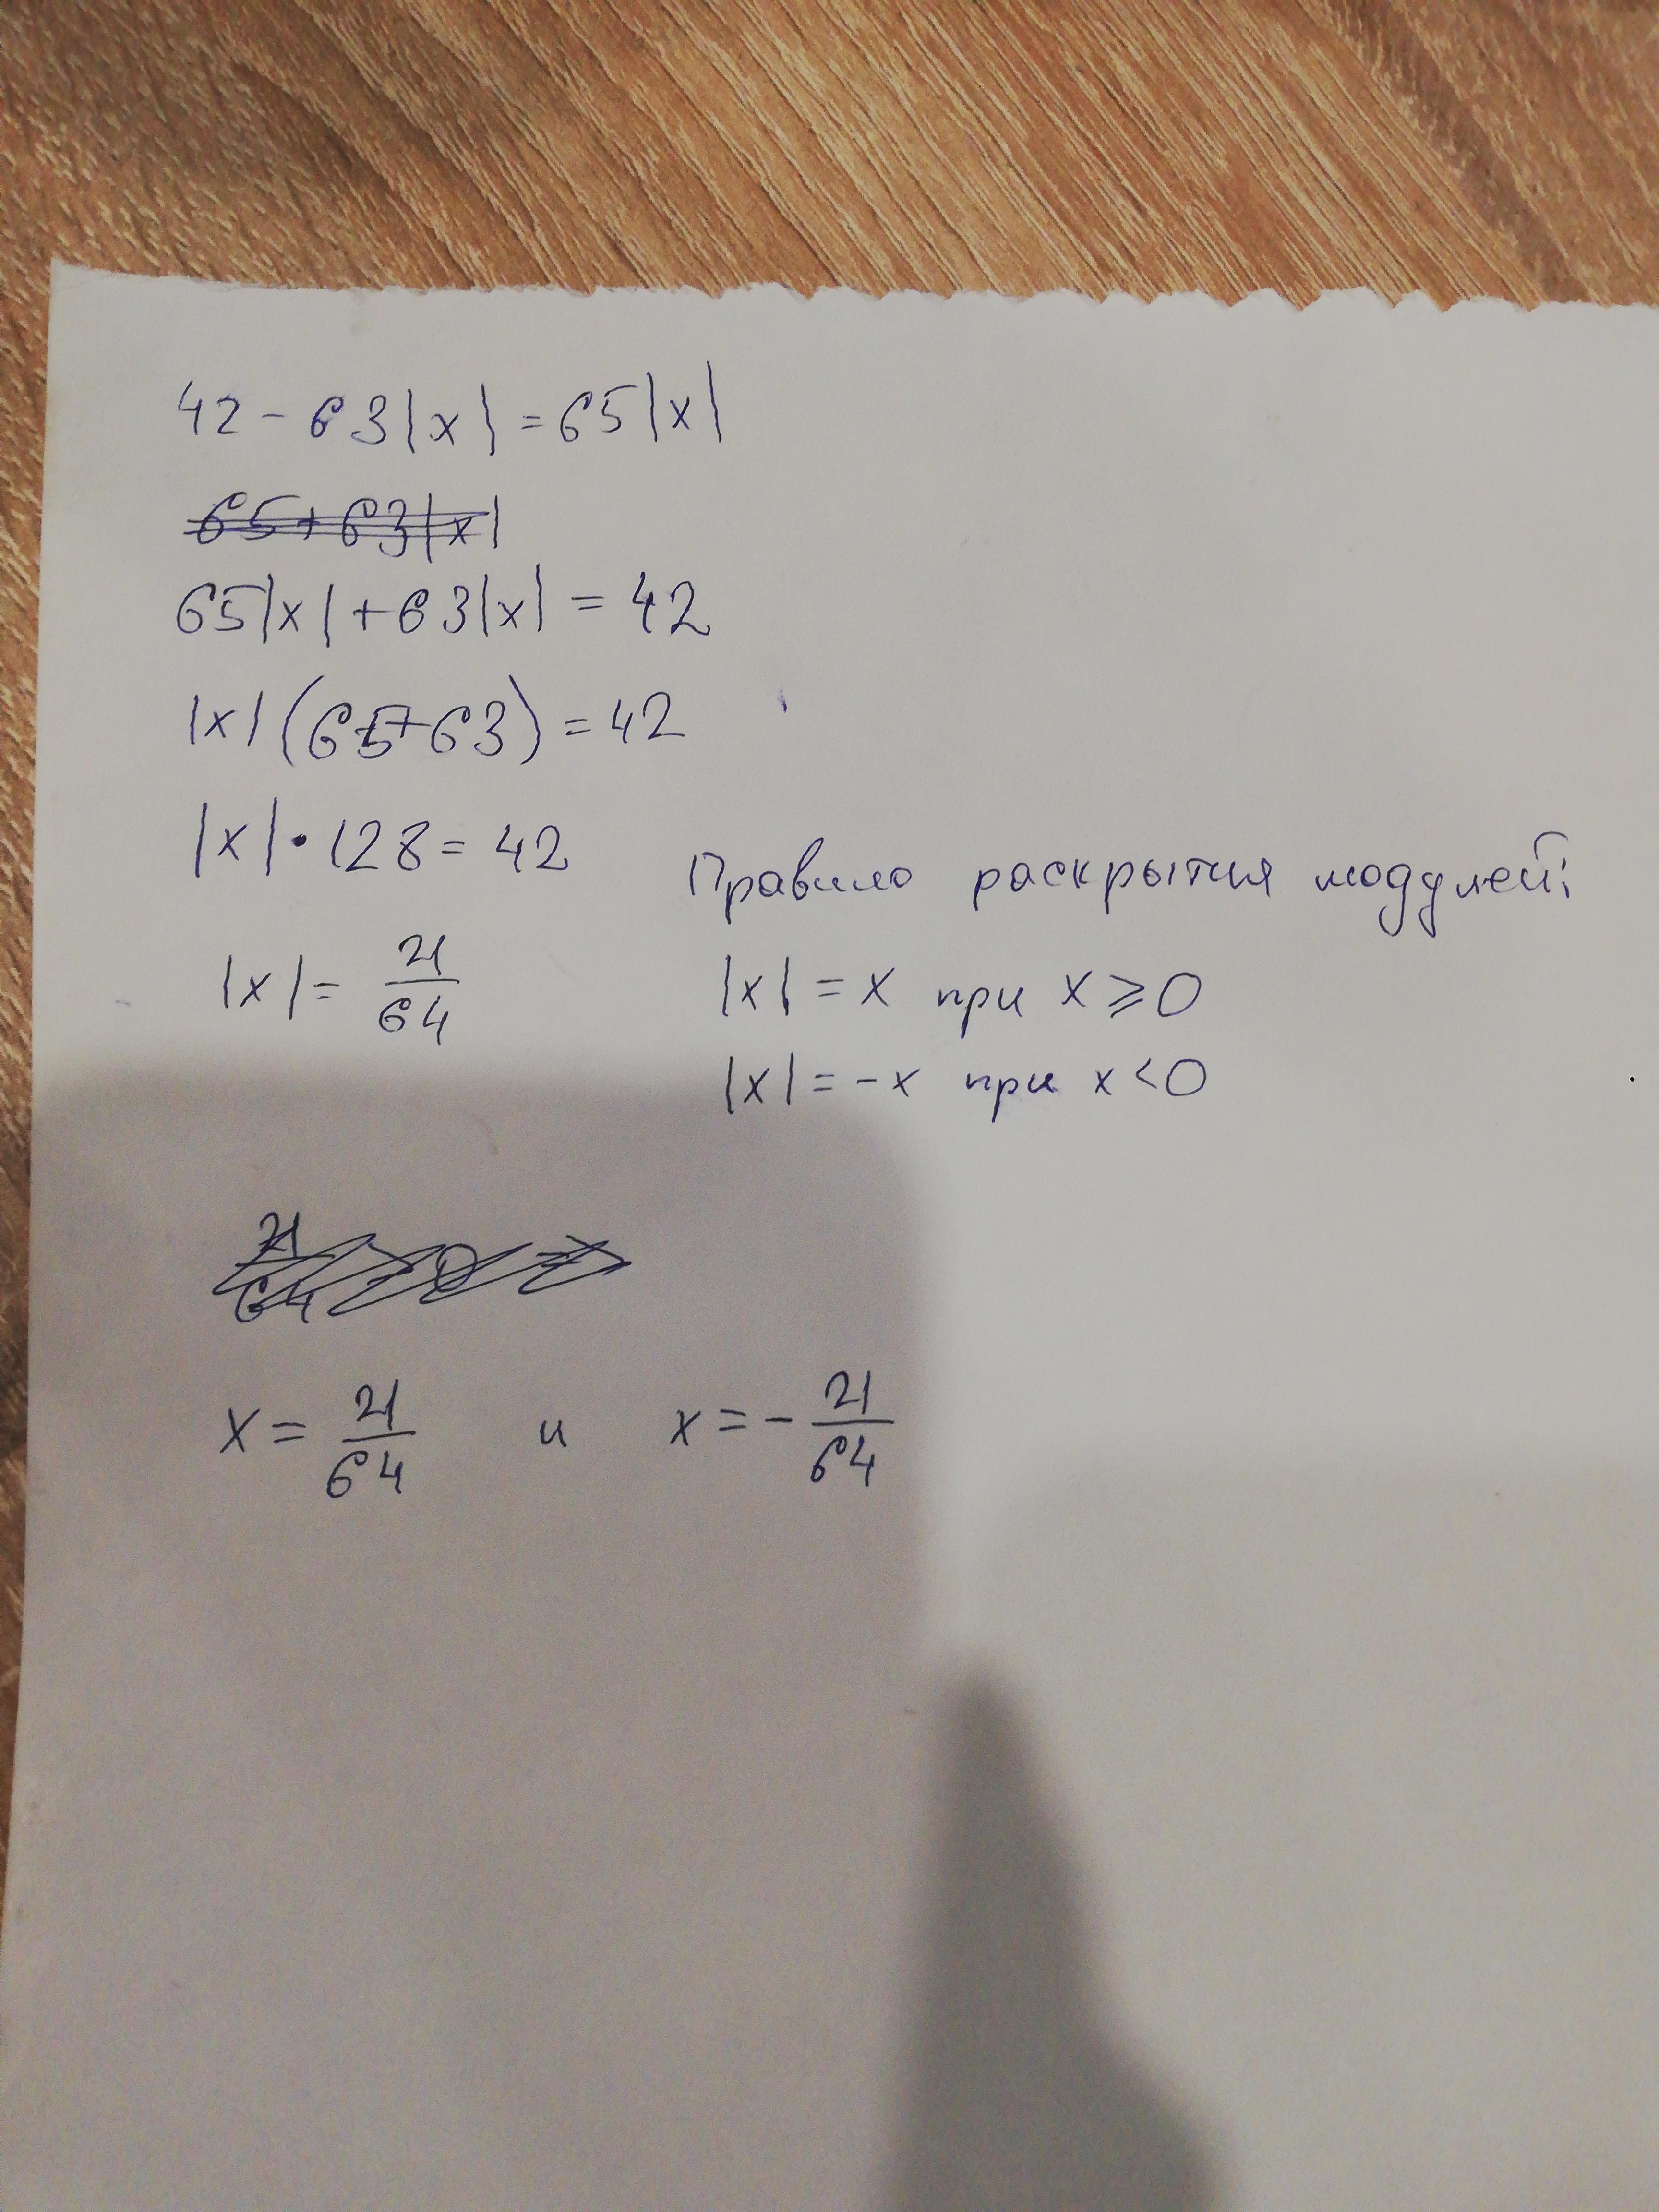 42 - 63|x| = 65|x|
65 + 63|x|
65|x| + 63|x| = 42
|x| (65+63) = 42
|x| · 128 = 42
|x| = 21/64
Правило раскрытия модулей:
|x| = x при x ⩾ 0
|x| = -x при x < 0
x = 21/64 и x = - 21/64